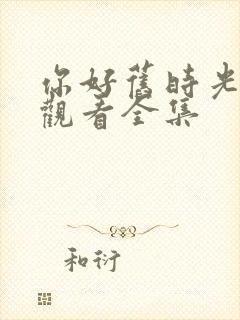 你好舊時光
觀看全集
和衍